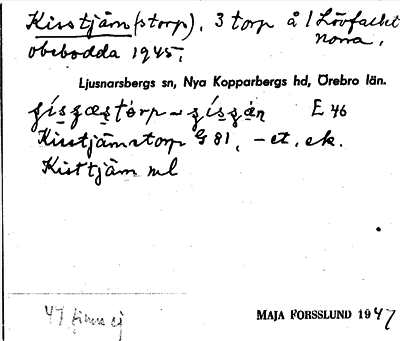 Kisstjärn(storp), 3 torp å 1 Lövfallet
norra,
obebodda 1945,
Ljusnarsbergs sn, Nya Kopparbergs hd, Örebro län.
E 46
Kisstjärnstorp G 81, – et. ek.
Kisttjärn ml
47 finns ej
MAJA FORSSLUND 1947